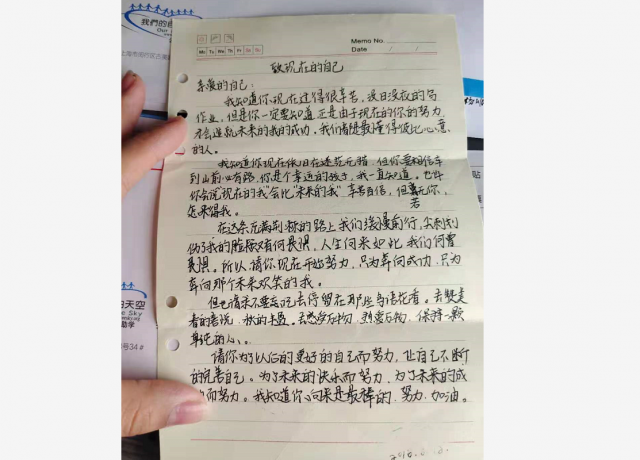 我們的自
Memo No.
Mo Tu We Th Fr Sa Su
Date / /
致现在的自己
亲爱的自己:
我知道你现在过得很辛苦,没日没夜的写
作业,但是你一定要知道,正是由于现在的你的努力
才会造就未来的我的成功,我们都是最懂得彼此心意
的人。
我知道你现在依旧在迷茫无措,但你要相信车
到山前必有路,你是个幸运的孩子,我一直知道。也许
你会说"现在的我"会比"未来的我"辛苦百倍,但若无你,
怎来得我。
在这条充满荆棘的路上我们缓慢前行,尖刺划
伤了我的脸颊又有何畏惧,人生向来如此,我们何曾
畏惧。所以,请你现在开始努力,只为奔向成功,只为
奔向那个未来欢笑的我。
但也请不要忘记去停留在那些鸟语花香。去赞
春的喜悦、秋的丰盈。去感受万物,热爱万物,保持一颗
的心、。
请你为了以后的更好的自己而努力,让自己不断
的完善自己。为了未来的快乐而努力,为了未来的成
而努力。我知道你向来是最棒的,努力,加油。
的天空
Sky
助学
号34#